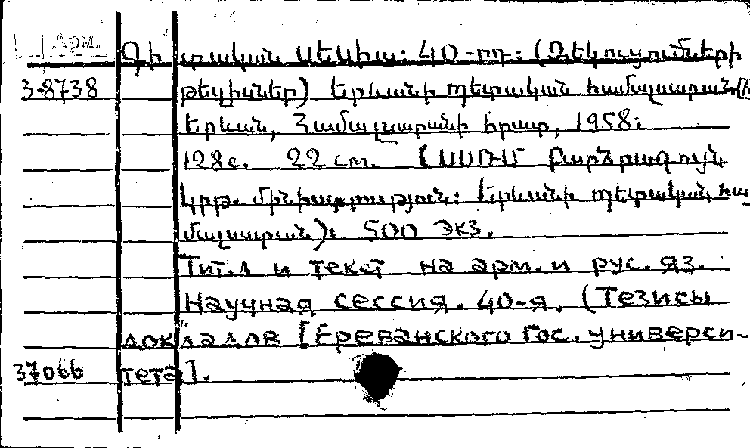 Арм.
Գիտական սեսիա: 40-րդ: (Զեկուցումների
3-8738 թեզիսներ) Երևանի պետական համալսարան
Երևան, Համալսարանի հրատ, 1958:
128с. 22 см. (ՍՍՌՄ Բարձրագույն
կրթ. մինիստրություն: Երևանի պետական հա
մալսարան): 500 экз.
Тит.л и текст на арм. и рус. яз.
Научная сессия. 40-я. (Тезисы
докладов [Ереванского Гос. универси-
37066 тета].